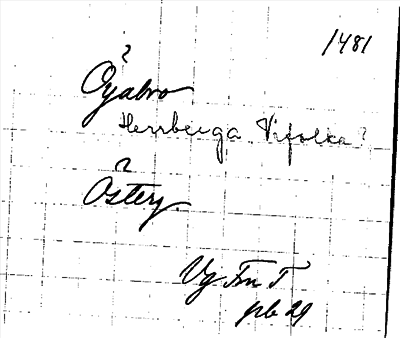 1481
?
Öyabro
Herrberga. Vifolka?
?
Österg.
Vg Fm T
pb 29